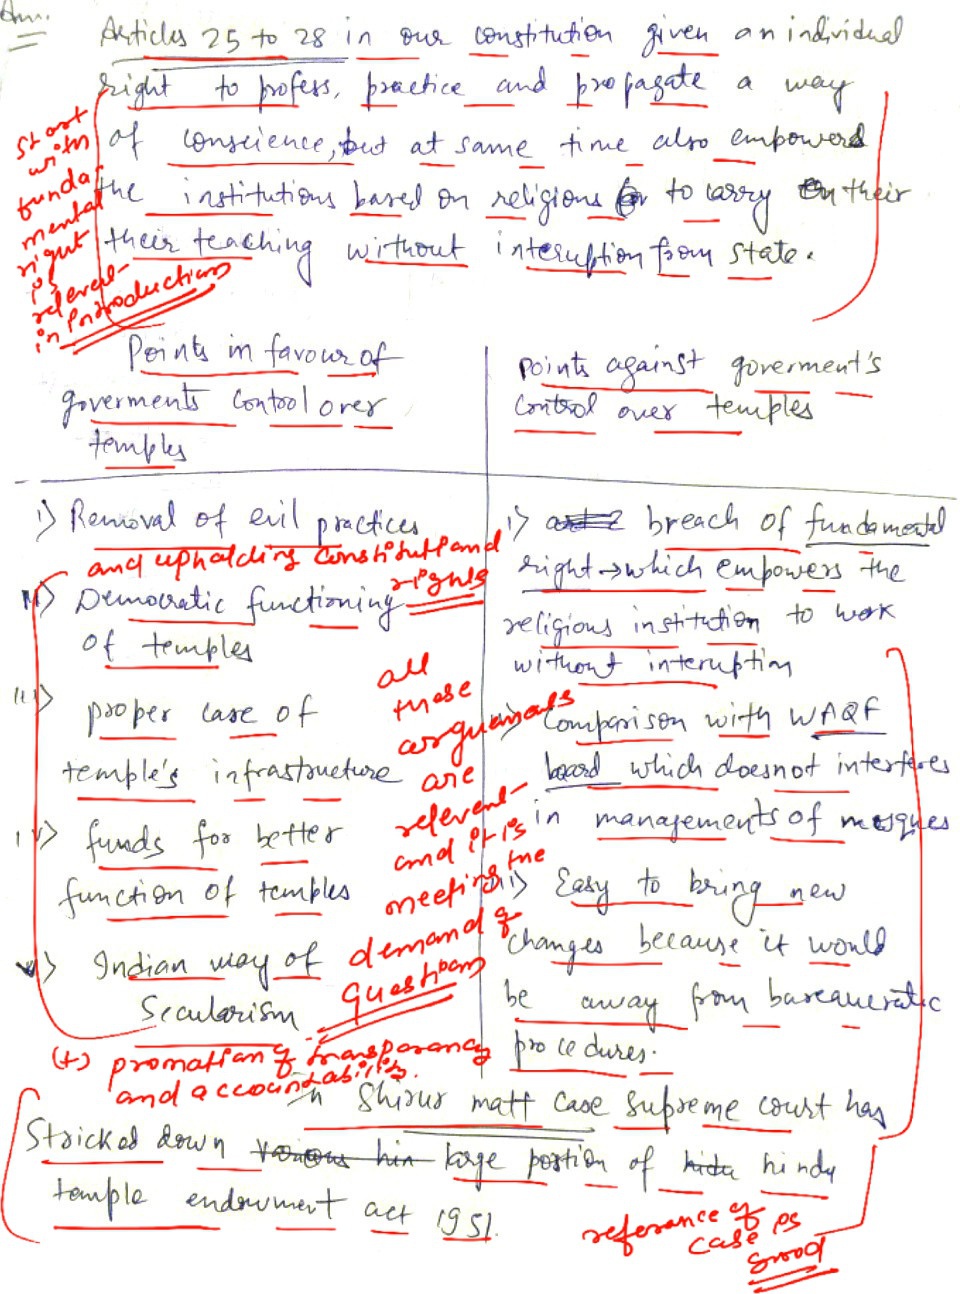 Ans.
Articles 25 to 28 in our constitution given an individual
right to profess, practice and propagate a way
of conscience, but at same time also empowered
the institutions based on religions to carry on their
their teaching without interuption from state.
start
with
funda
mental
right
is
relevent
in Introduction
Points in favour of
goverments control over
temples
i) Removal of evil practices
and upholding constitutional
rights
ii) Democratic functioning
of temples
iii) proper case of
temple's infrastructure
iv) funds for better
function of temples
v) Indian way of
Secularism
(+) promotion of transparency
and accountability.
all
these
arguments
are
relevent
and it is
meeting the
demand of
question
points against goverment's
control over temples
i) breach of fundamental
right → which empowers the
religious institution to work
without interuption
ii) Comparison with WAQF
board which doesnot interferes
in managements of mosques
iii) Easy to bring new
changes because it would
be away from bureaucratic
procedures.
In Shirur matt case supreme court has
Stricked down various hin large portion of hindu hindu
temple endowment act 1951.
referance of
case is
good